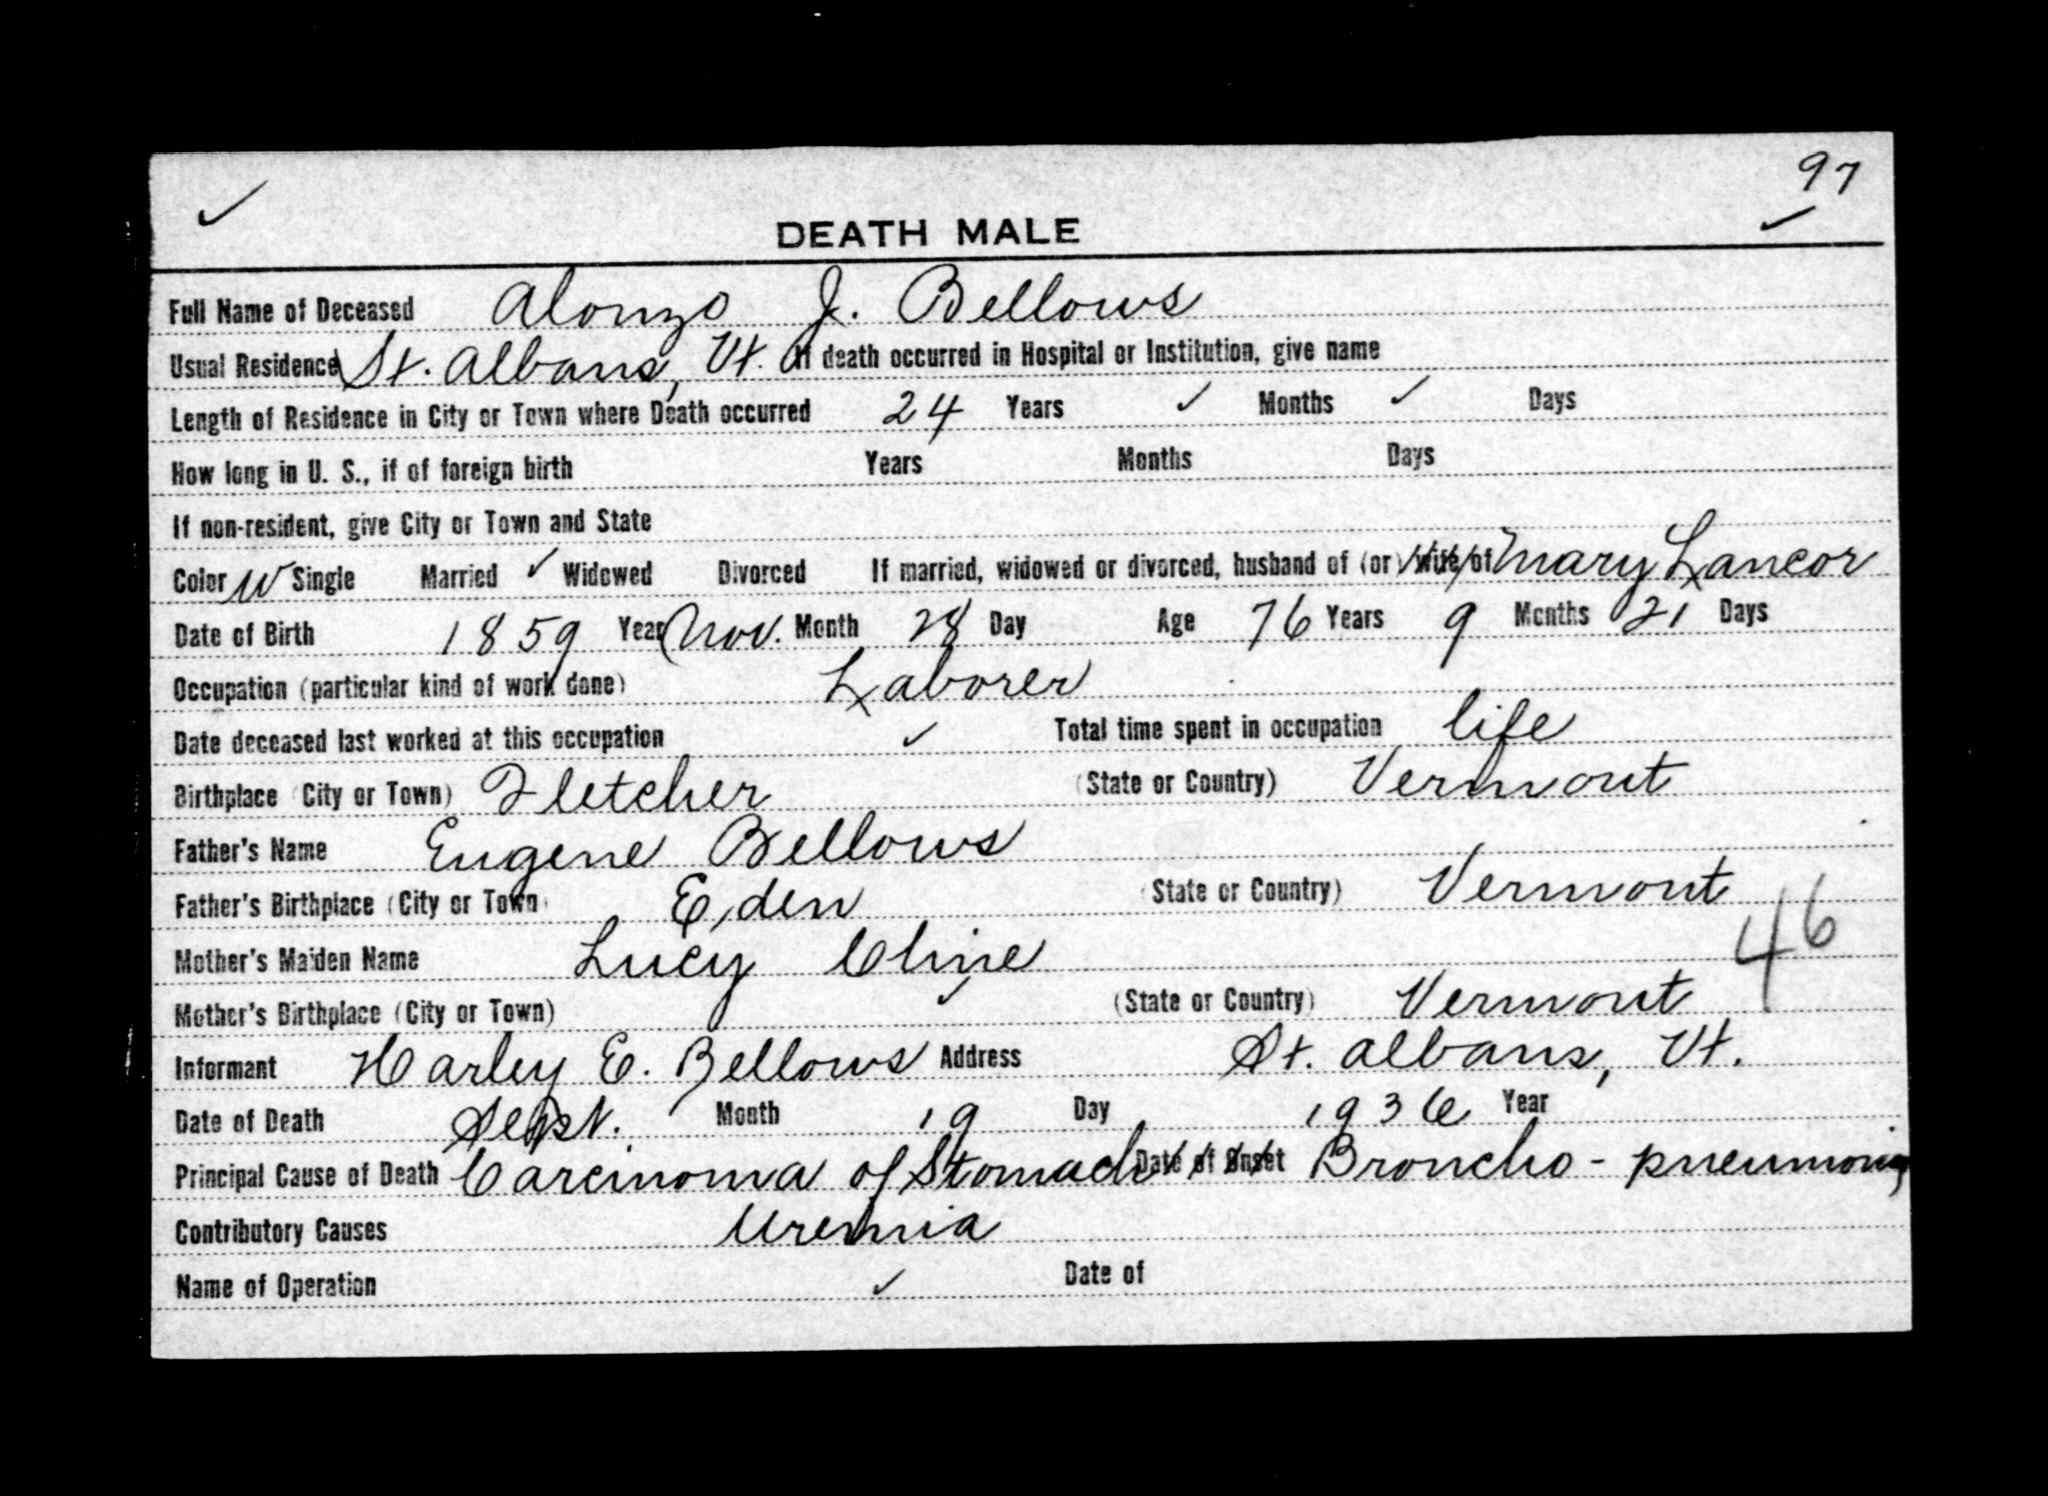 97
DEATH MALE
Full Name of Deceased Alonzo J. Bellows
Usual Residence St. Albans, Vt. If death occurred in Hospital or Institution, give name
Length of Residence in City or Town where Death occurred 24 Years ✓ Months ✓ Days
How long in U. S., if of foreign birth Years Months Days
If non-resident, give City or Town and State
Color W Single Married ✓ Widowed Divorced If married, widowed or divorced, husband of (or) wife of Mary Lancor
Date of Birth 1859 Year Nov. Month 28 Day Age 76 Years 9 Months 21 Days
Occupation (particular kind of work done) Laborer
Date deceased last worked at this occupation ✓ Total time spent in occupation life
Birthplace (City or Town) Fletcher (State or Country) Vermont
Father's Name Eugene Bellows
Father's Birthplace (City or Town) Eden (State or Country) Vermont
46
Mother's Maiden Name Lucy Cline
Mother's Birthplace (City or Town) ✓ (State or Country) Vermont
Informant Harley E. Bellows Address St. Albans, Vt.
Date of Death Sept. Month 19 Day 1936 Year
Principal Cause of Death Carcinoma of Stomach Date of Onset Broncho-pneumonia,
Contributory Causes Uremia
Name of Operation ✓ Date of